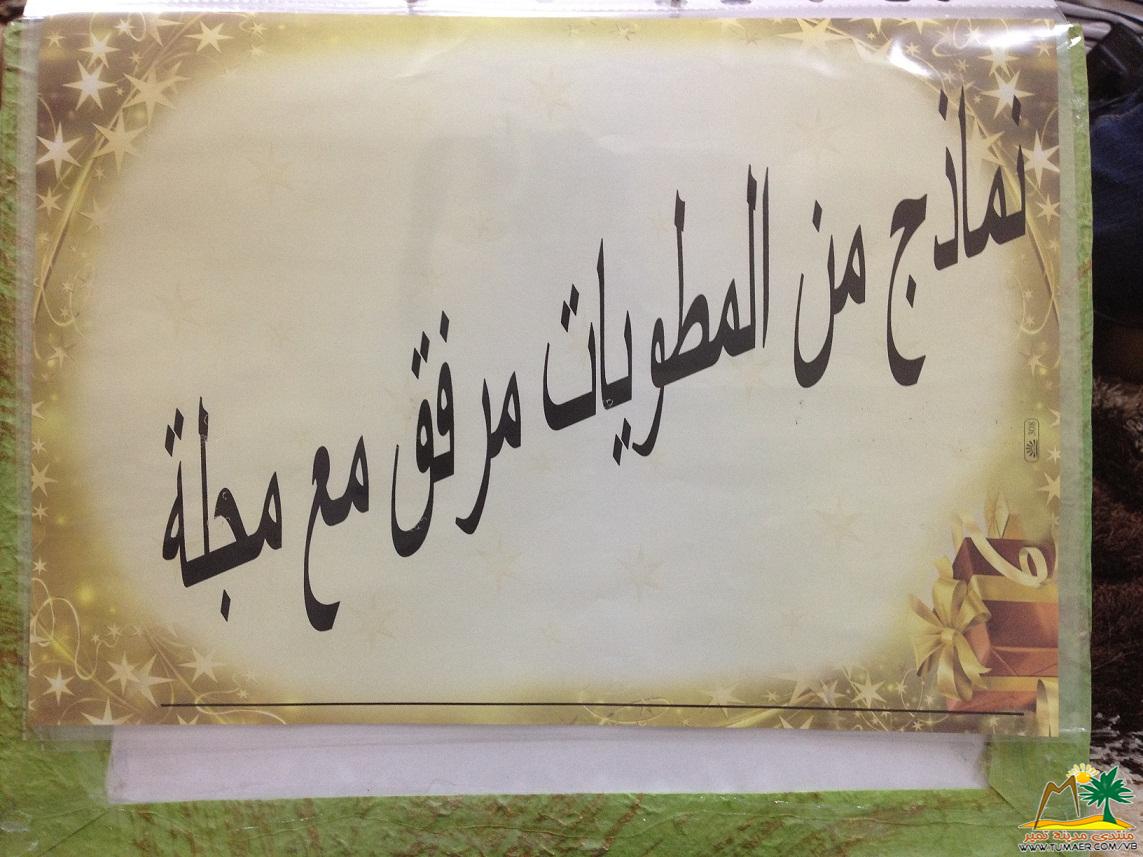 نماذج من المطويات مرفق مع مجلة
308
منتدى مدينة تمير
WWW.TUMAER.COM/VB